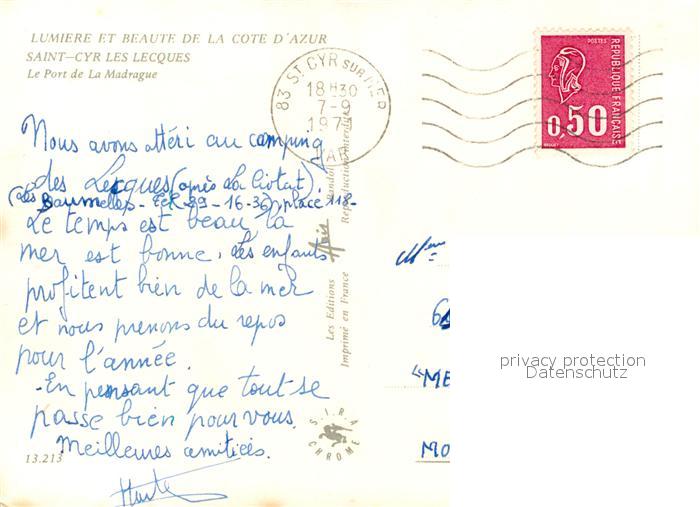 LUMIERE ET BEAUTE DE LA COTE D'AZUR
SAINT-CYR LES LECQUES
Le Port de La Madrague
83 ST CYR SUR MER
18H30
7-9
VAR
POSTES
REPUBLIQUE FRANÇAISE
0,50
Nous avons attéri au camping
des Lecques (après La Ciotat).
(Les Baumelles - Tél-29-16-36) place 118-
Le temps est beau, la
mer est bonne, les enfants
profitent bien de la mer
et nous prenons du repos
pour l'année.
-En pensant que tout se
passe bien pour vous.
Meilleures amitiés.
Les Editions
Imprimé en France
Reproduction Interdite
S.I.R.A.
CHROME
13.213
Mme
"ME
MO
privacy protection
Datenschutz